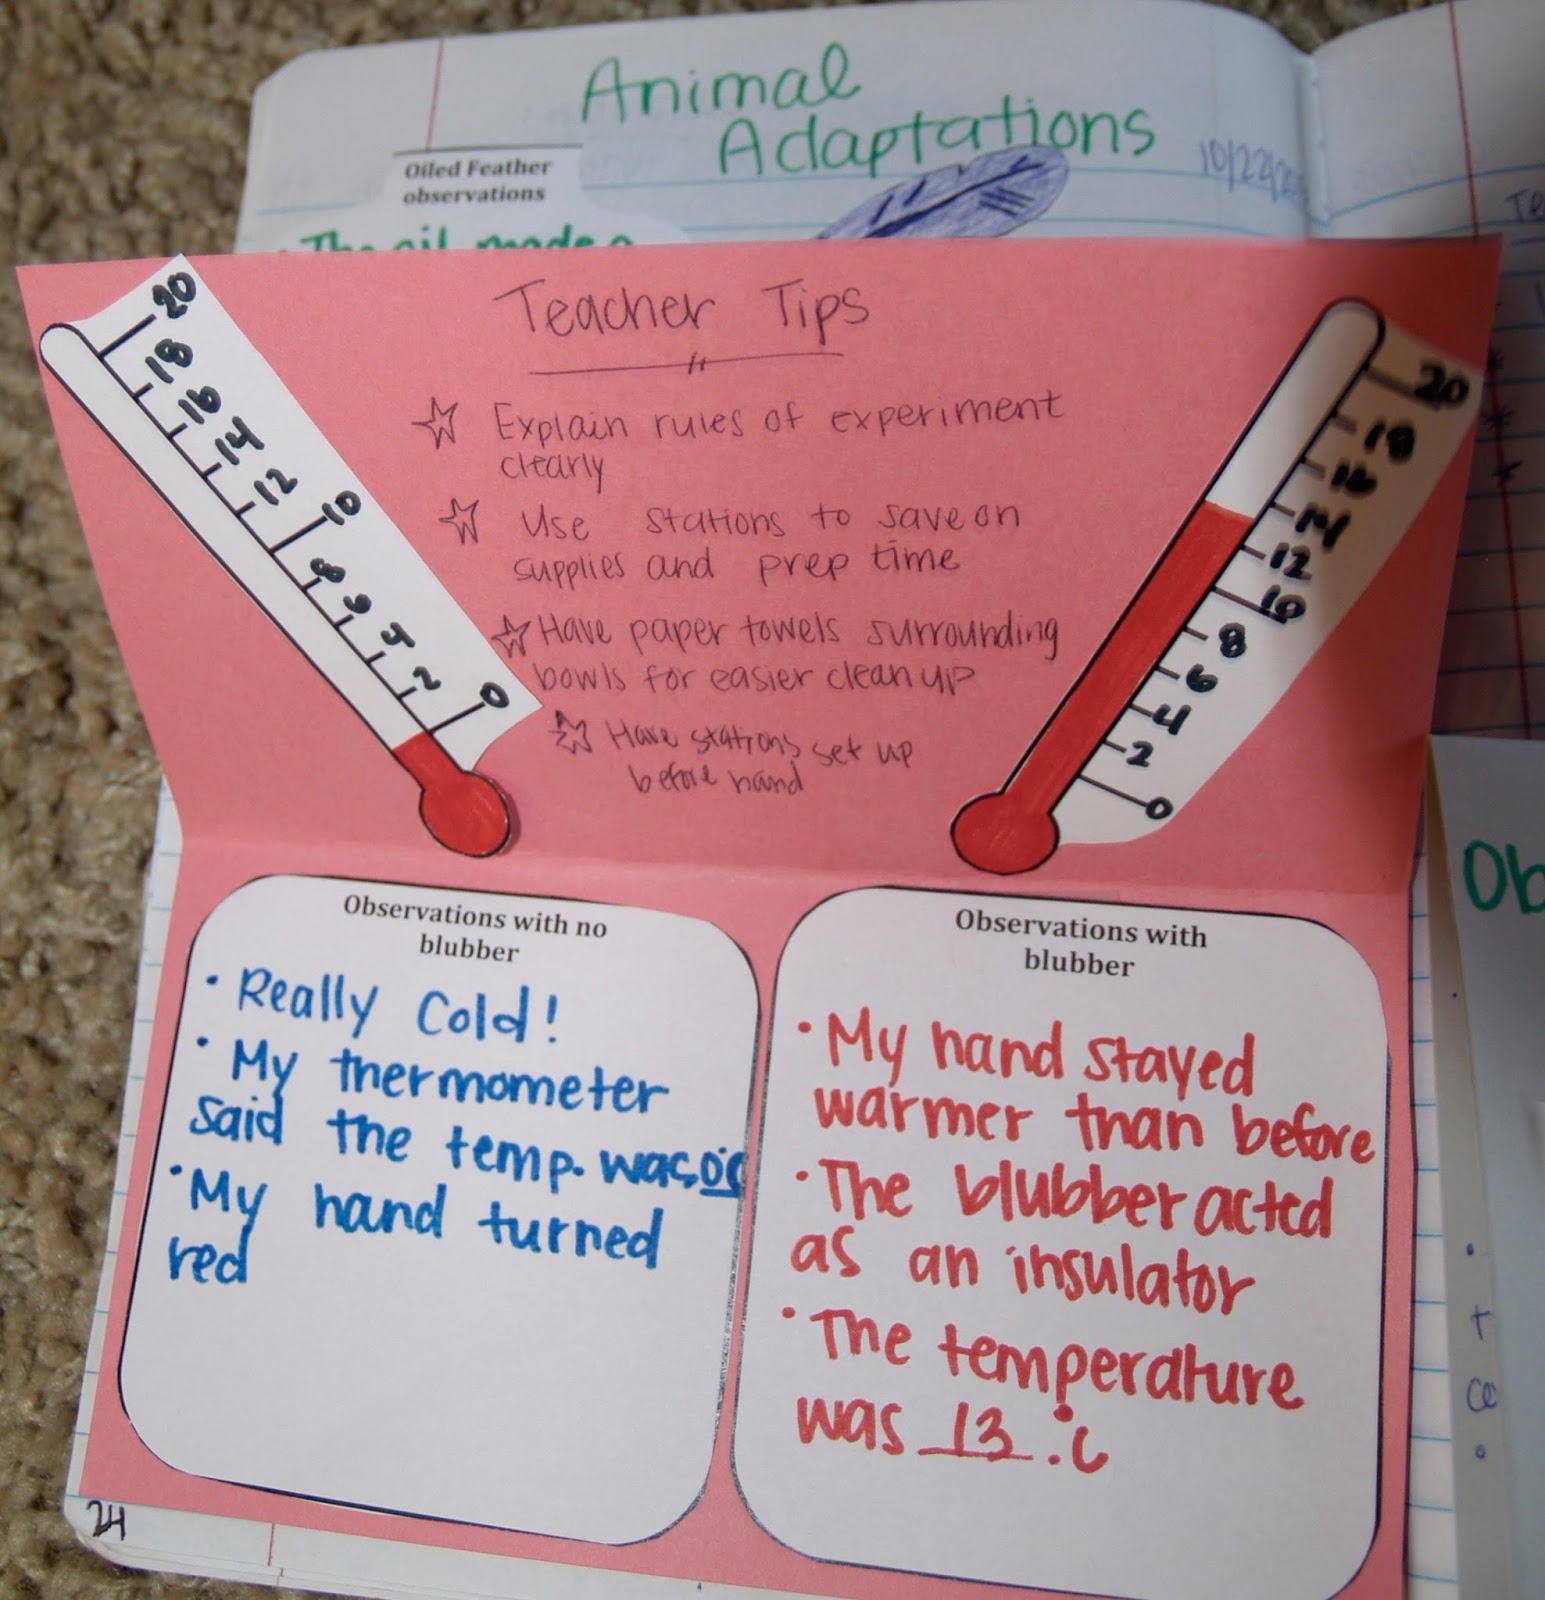 Animal
Adaptations
10/22/
Oiled Feather
observations
Teacher Tips
Explain rules of experiment
clearly
Use stations to save on
supplies and prep time
Have paper towels surrounding
bowls for easier clean up
Have stations set up
before hand
20
18
16
14
12
10
8
6
4
2
0
20
18
16
14
12
10
8
6
4
2
0
Observations with no
blubber
• Really Cold!
• My thermometer
said the temp. was 0°C
• My hand turned
red
Observations with
blubber
• My hand stayed
warmer than before
• The blubber acted
as an insulator
• The temperature
was 13.°C
24
Ob